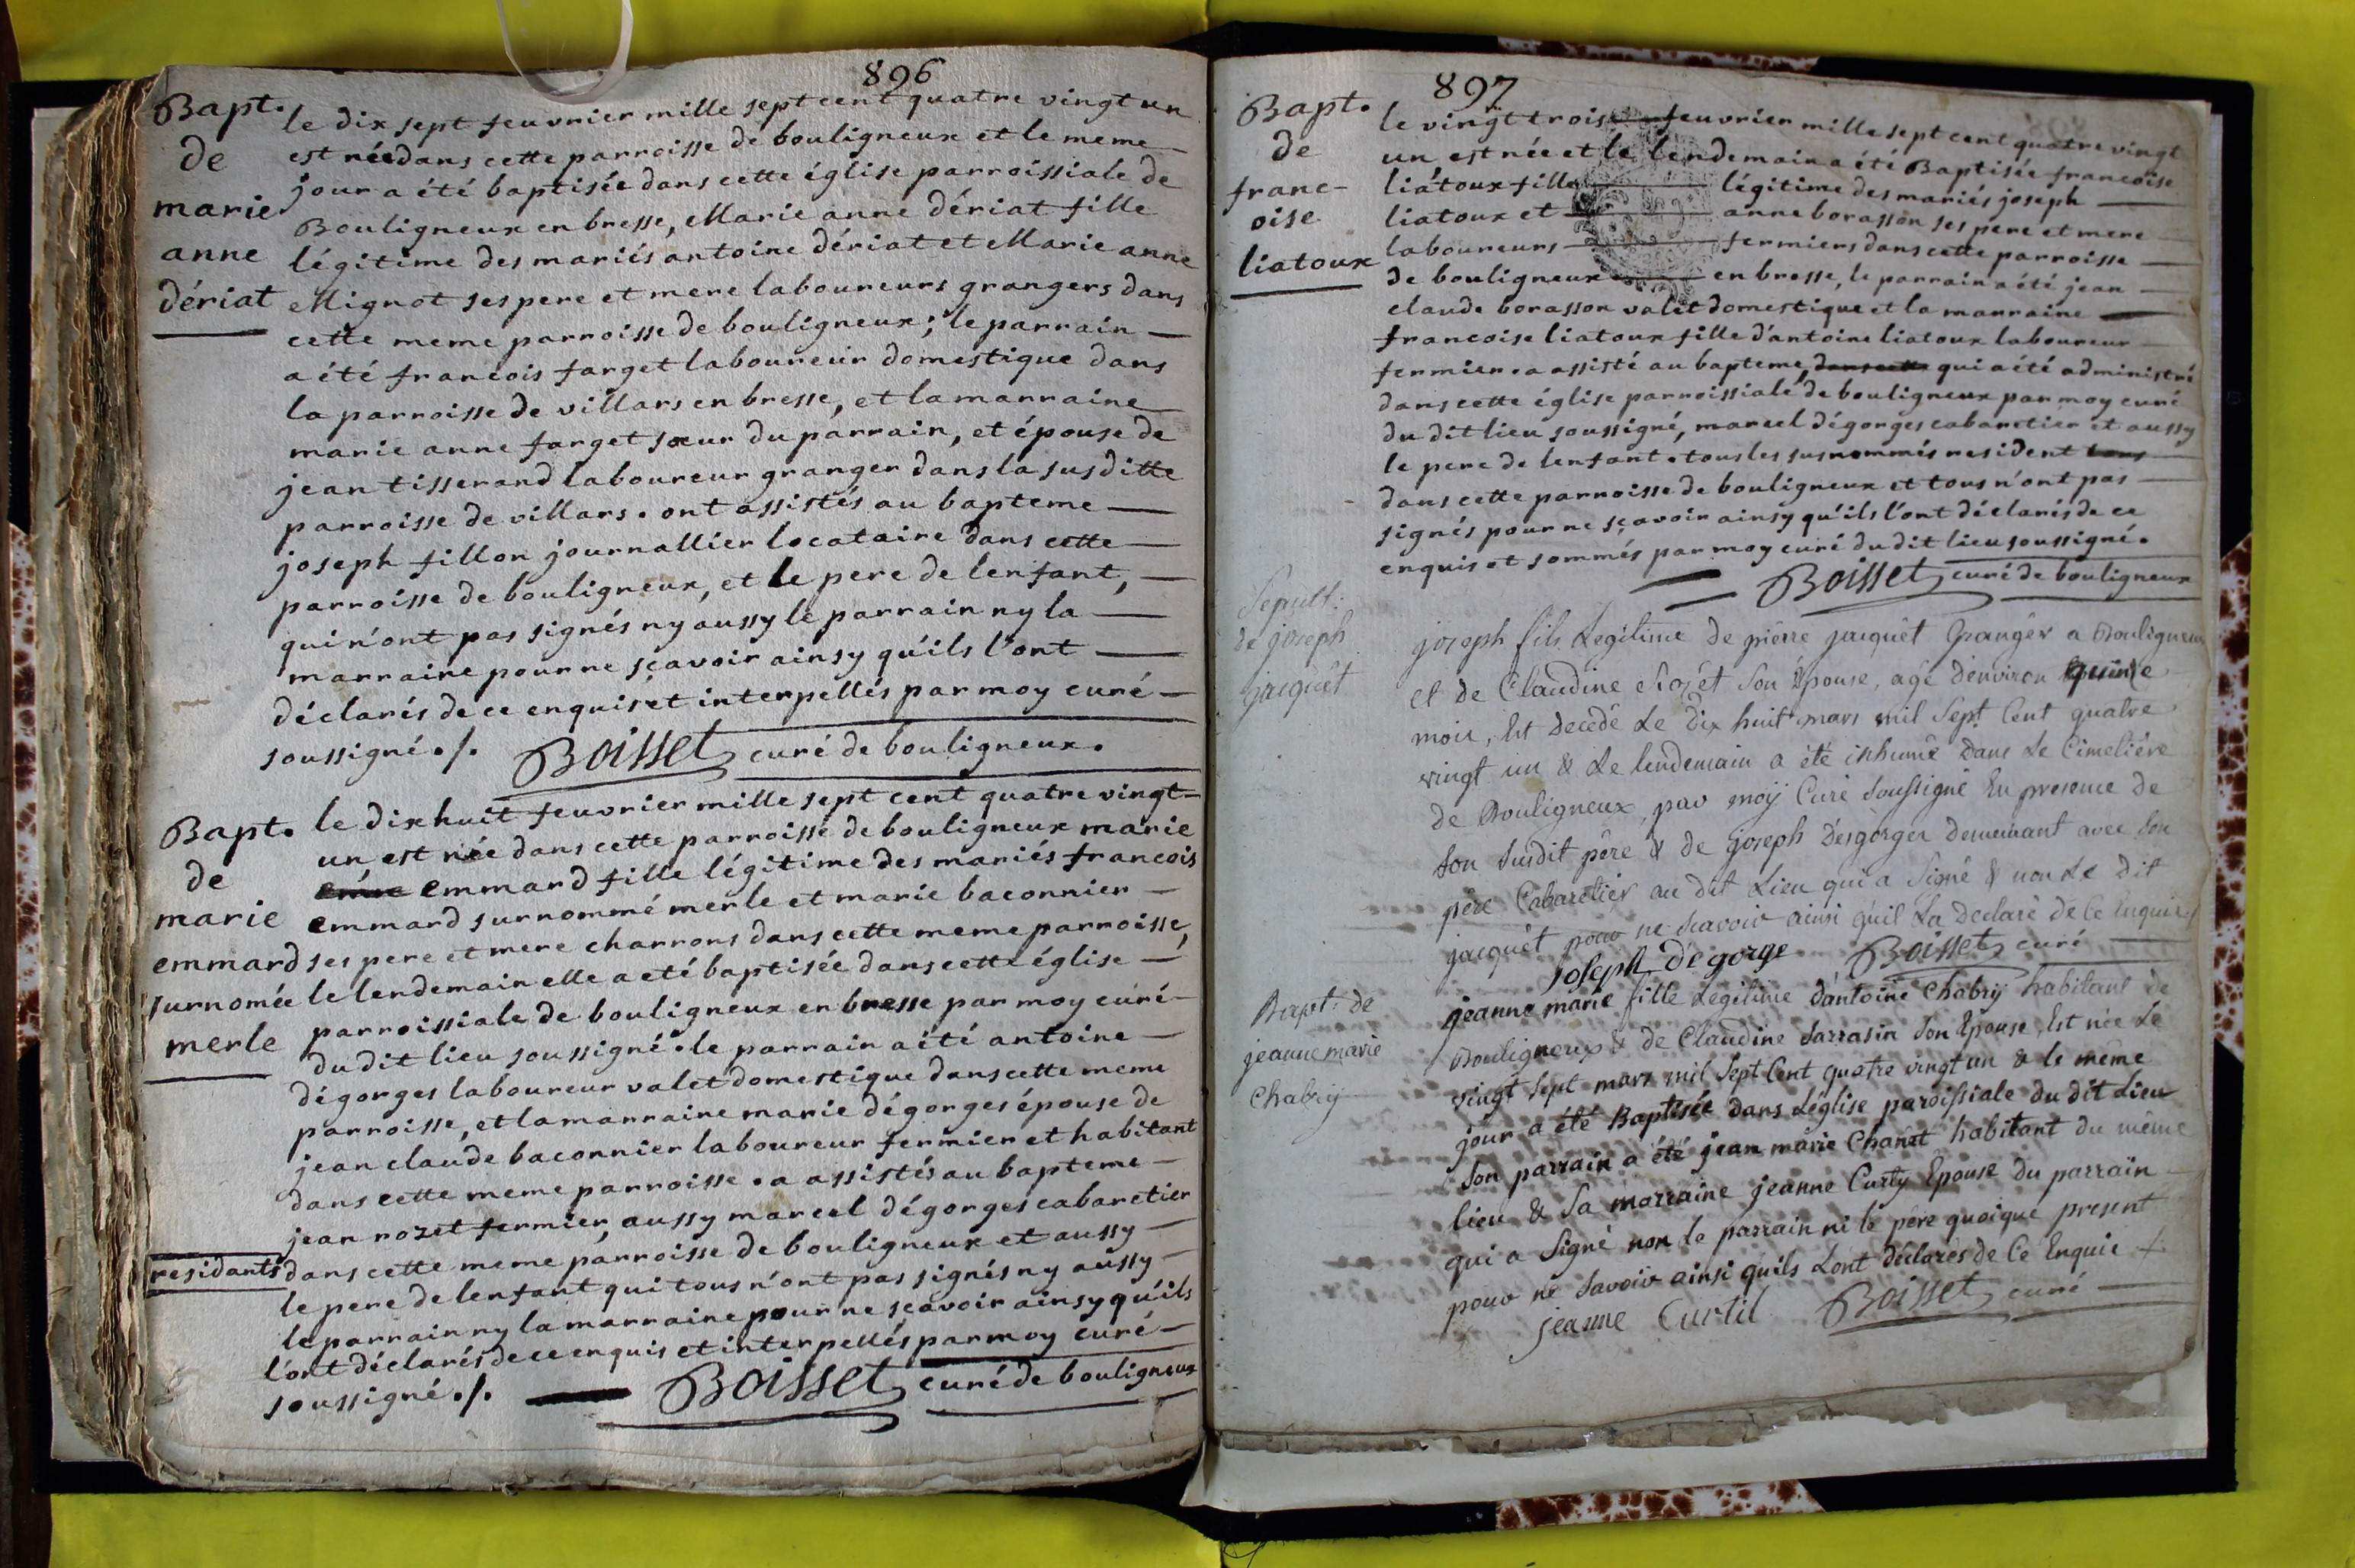 896
Bapt.
de
marie
anne
dériat
le dix sept feuvrier mille sept cent quatre vingt un
est née dans cette parroisse de bouligneux et le meme
jour a été baptisée dans cette église parroissiale de
Bouligneux en bresse, Marie anne dériat fille
légitime des mariés antoine dériat et Marie anne
Mignot ses pere et mere laboureurs grangers dans
cette meme parroisse de bouligneux; le parrain
a été francois farget laboureur domestique dans
la parroisse de villars en bresse, et la marraine
marie anne farget sœur du parrain, et épouse de
jean tisserand laboureur granger dans la susditte
parroisse de villars. ont assistés au bapteme
joseph fillon journallier locataire dans cette
parroisse de bouligneux, et le pere de lenfant,
qui n'ont pas signés ny aussy le parrain ny la
marraine pour ne sçavoir ainsy qu'ils l'ont
déclarés de ce enquis et interpellés par moy curé
soussigné./. Boisset curé de bouligneux.
Bapt.
de
marie
emmard
surnomée
merle
le dixhuit feuvrier mille sept cent quatre vingt
un est née dans cette parroisse de bouligneux marie
emmard fille légitime des mariés francois
emmard surnommé merle et marie baconnier
ses pere et mere charrons dans cette meme parroisse,
le lendemain elle a eté baptisée dans cette église
parroissiale de bouligneux en bresse par moy curé
du dit lieu soussigné. le parrain a été antoine
dégorges laboureur valet domestique dans cette meme
parroisse, et la marraine marie dégorges épouse de
jean claude baconnier laboureur fermier et habitant
dans cette meme parroisse. a assistés au bapteme
jean rozet fermier, aussy marcel dégorges cabaretier
residants dans cette meme parroisse de bouligneux et aussy
le pere de lenfant qui tous n'ont pas signés ny aussy
le parrain ny la marraine pour ne sçavoir ainsy qu'ils
l'ont déclarés de ce enquis et interpellés par moy curé
soussigné./. Boisset curé de bouligneux
897
Bapt.
de
franc-
oise
liatoux
le vingt trois feuvrier mille sept cent quatre vingt
un est née et le lendemain a été Baptisée francoise
liatoux fille légitime des mariés joseph
liatoux et anne borasson ses pere et mere
laboureurs fermiers dans cette parroisse
de bouligneux en bresse, le parrain a été jean
claude borasson valet domestique et la marraine
francoise liatoux fille d'antoine liatoux laboureur
fermier. a assisté au bapteme, dans cette qui a été administré
dans cette église parroissiale de bouligneux par moy curé
du dit lieu soussigné, marcel dégorges cabaretier et aussy
le pere de lenfant. tous les susnommés resident
dans cette parroisse de bouligneux et tous n'ont pas
signés pour ne sçavoir ainsy qu'ils l'ont déclarés de ce
enquis et sommés par moy curé du dit lieu soussigné.
Boisset curé de bouligneux
Sepult:
de joseph
jacquêt
joseph fils Legitime de pierre jacquêt Granger a Bouligneux
et de Claudine Rozét Son Epouse, agé d'environ quinze
mois, Est Decedé Le Dix huit mars mil Sept Cent quatre
vingt un & Le lendemain a été inhumé Dans Le Cimetiére
de Bouligneux, par moÿ Curé Soussigné En presence de
Son Susdit pére & de joseph Desgorger Demeurant avec Son
pére Cabaretier au dit Lieu qui a Signé & non Le Dit
jacquêt pour ne Scavoir ainsi quil La Declaré De Ce Enquis
Joseph Dégorge Boisset curé
Bapt: de
jeanne marie
Chabrÿ
jeanne marie fille Legitime d'antoine Chabrÿ habitant de
Bouligneux & de Claudine Sarrasin Son Epouse, Est née Le
vingt Sept mars mil Sept Cent quatre vingt un & le même
jour a été Baptisée Dans L'église paroissiale du dit Lieu
Son parrain a été jean marie Chanét habitant du même
lieu & Sa marraine jeanne Curty Epouse du parrain
qui a Signé non le parrain ni le pére quoique present
pour ne Savoir ainsi quils L'ont déclarés de Ce Enquis
jeanne Curtil Boisset curé